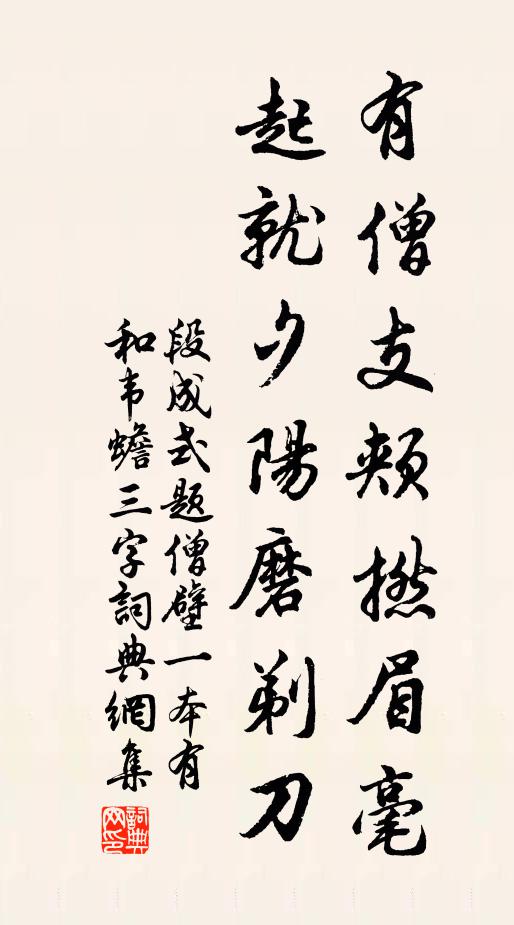 有僧支頰撚眉毫
起就夕陽磨剃刀
段成式题僧壁一本有
和韦蟾三字詞典網集
詞典網印